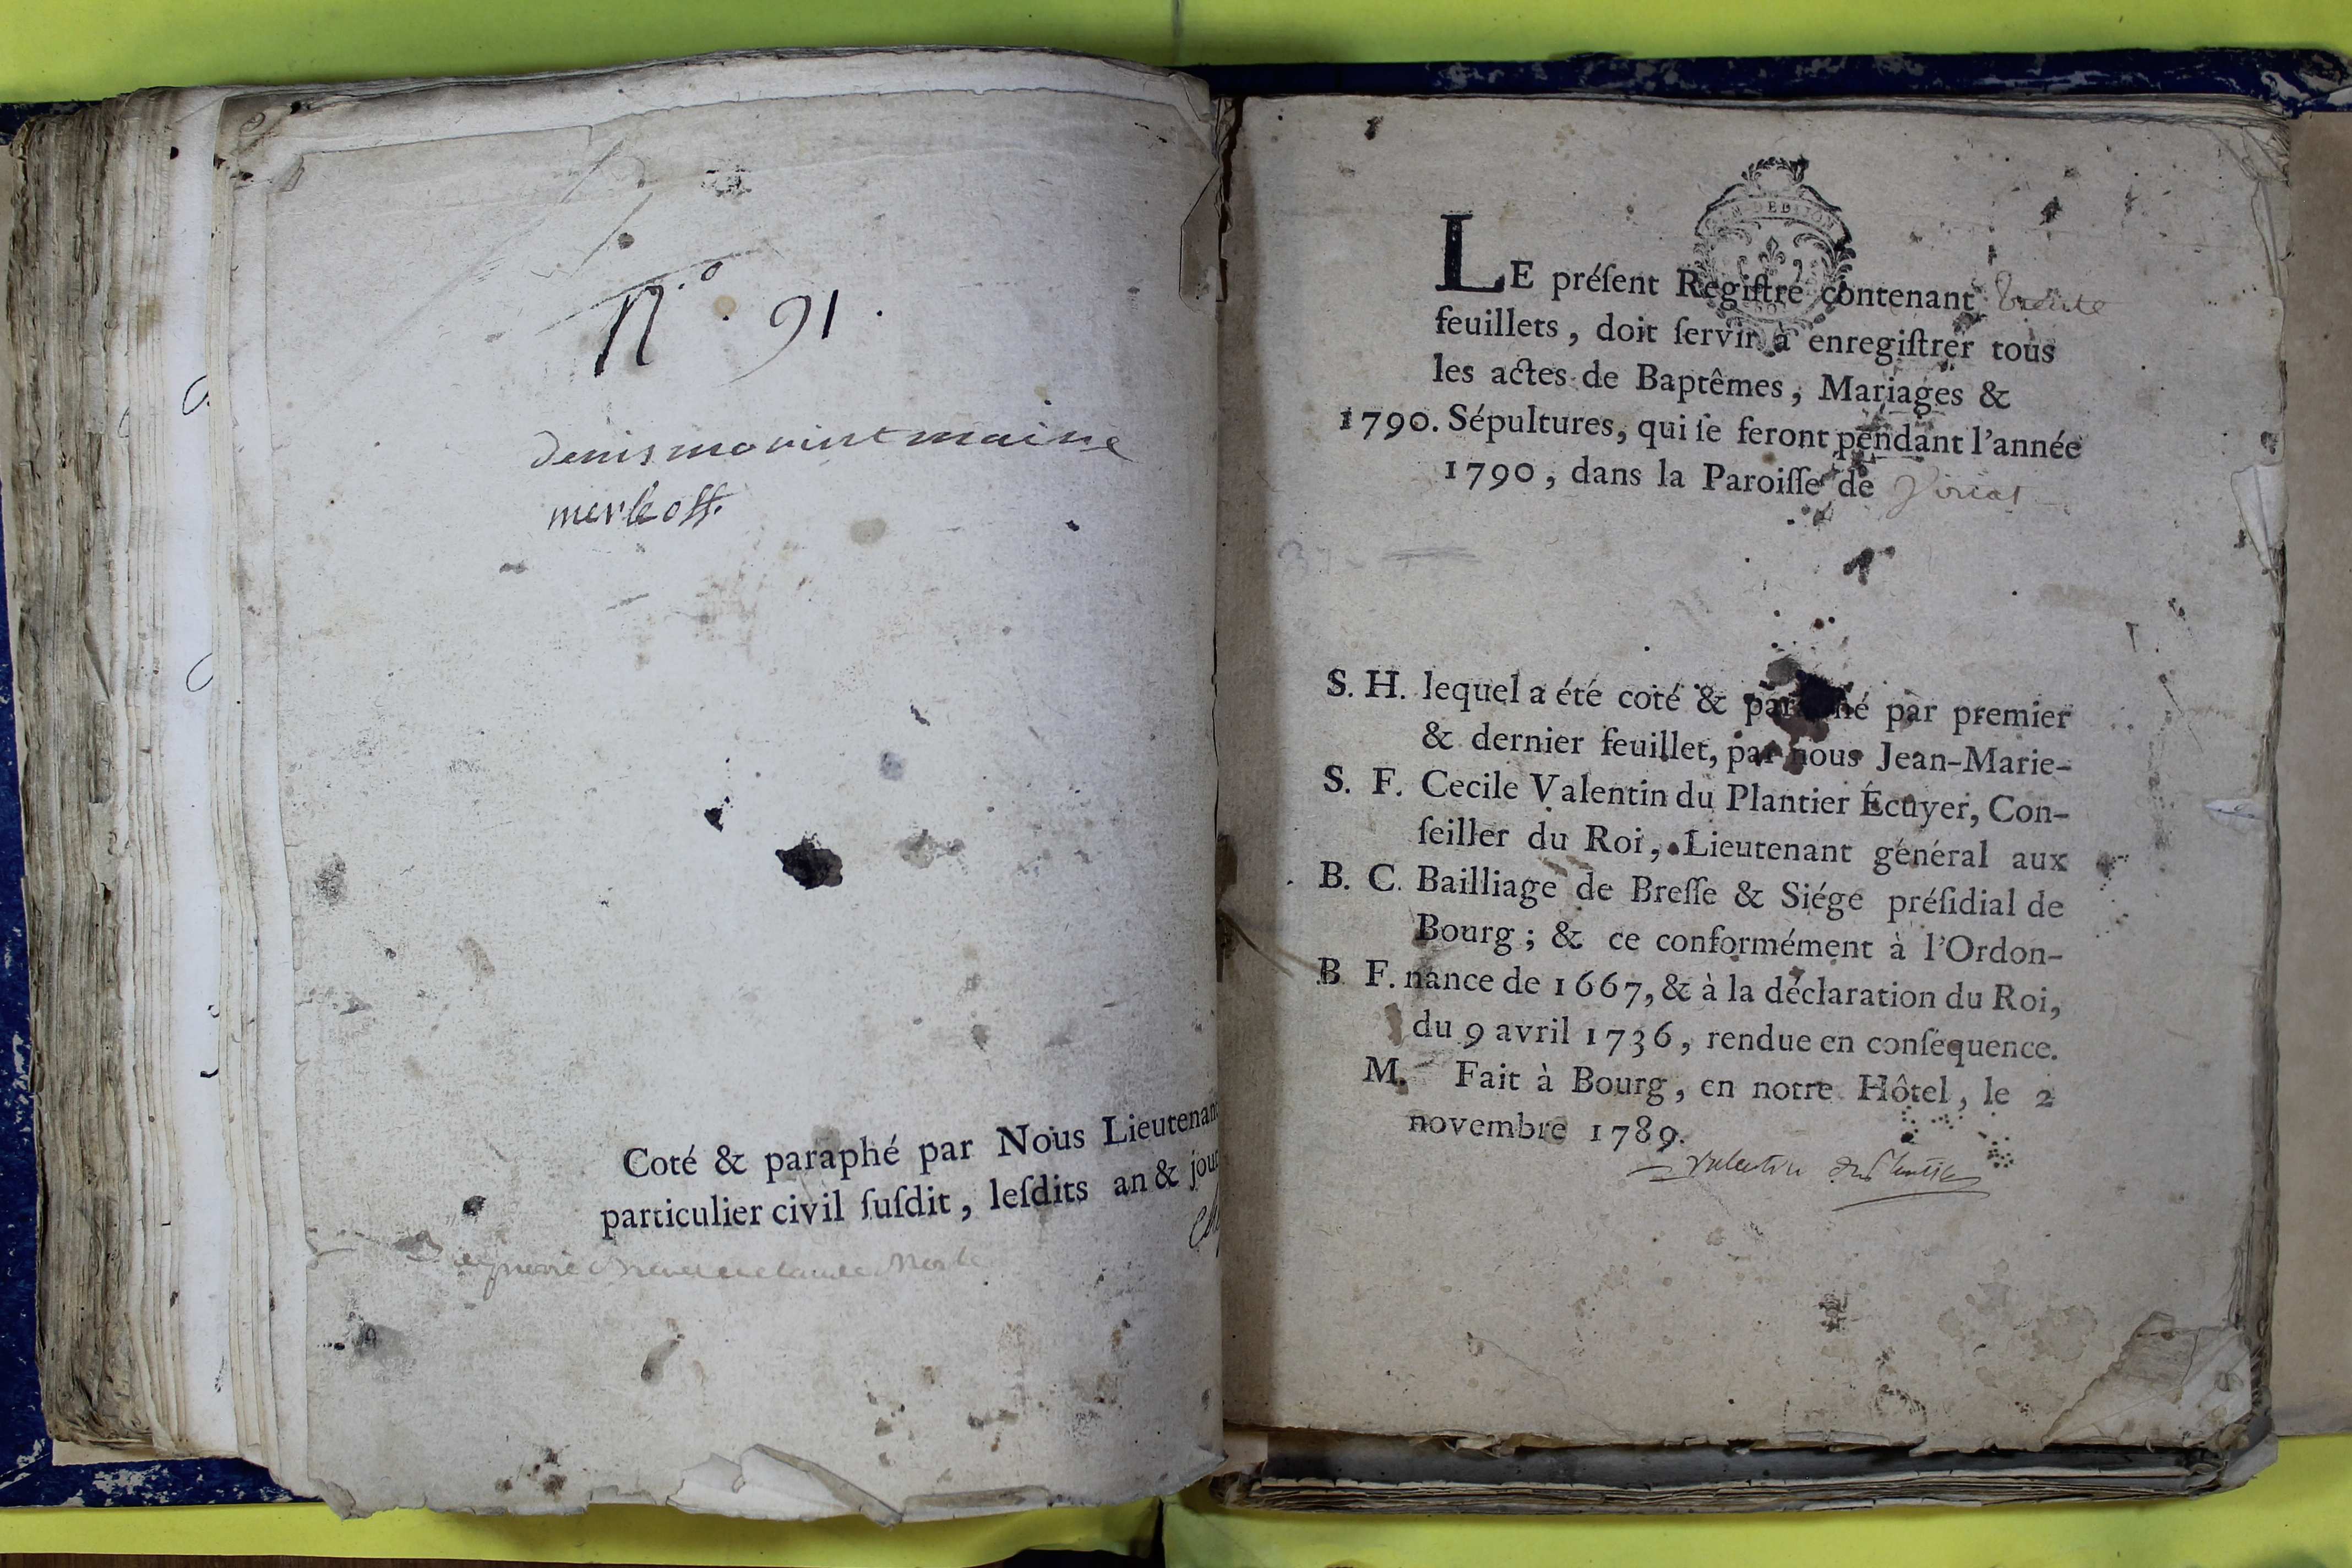 N.° 91.
Coté & paraphé par Nous Lieutenant
particulier civil ſuſdit, leſdits an & jour
LE préſent Regiſtre contenant trente
feuillets, doit ſervir à enregiſtrer tous
les actes de Baptêmes, Mariages &
1790. Sépultures, qui ſe feront pendant l'année
1790, dans la Paroiſſe de Viriat
S. H. lequel a été coté & par hé par premier
& dernier feuillet, par nous Jean-Marie-
S. F. Cecile Valentin du Plantier Écuyer, Con-
ſeiller du Roi, Lieutenant général aux
B. C. Bailliage de Breſſe & Siége préſidial de
Bourg; & ce conformément à l'Ordon-
B F. nance de 1667, & à la déclaration du Roi,
du 9 avril 1736, rendue en conſéquence.
M. Fait à Bourg, en notre Hôtel, le 2
novembre 1789.
Valentin du Plantier